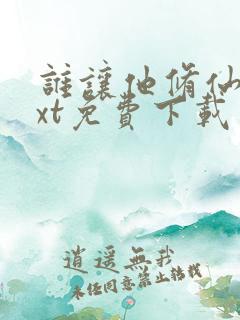 誰讓他脩仙
xt免費下載
逍遥無我
未经同意禁止转载